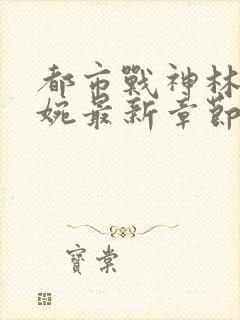 都市戰神林
婉最新章節
寶棠